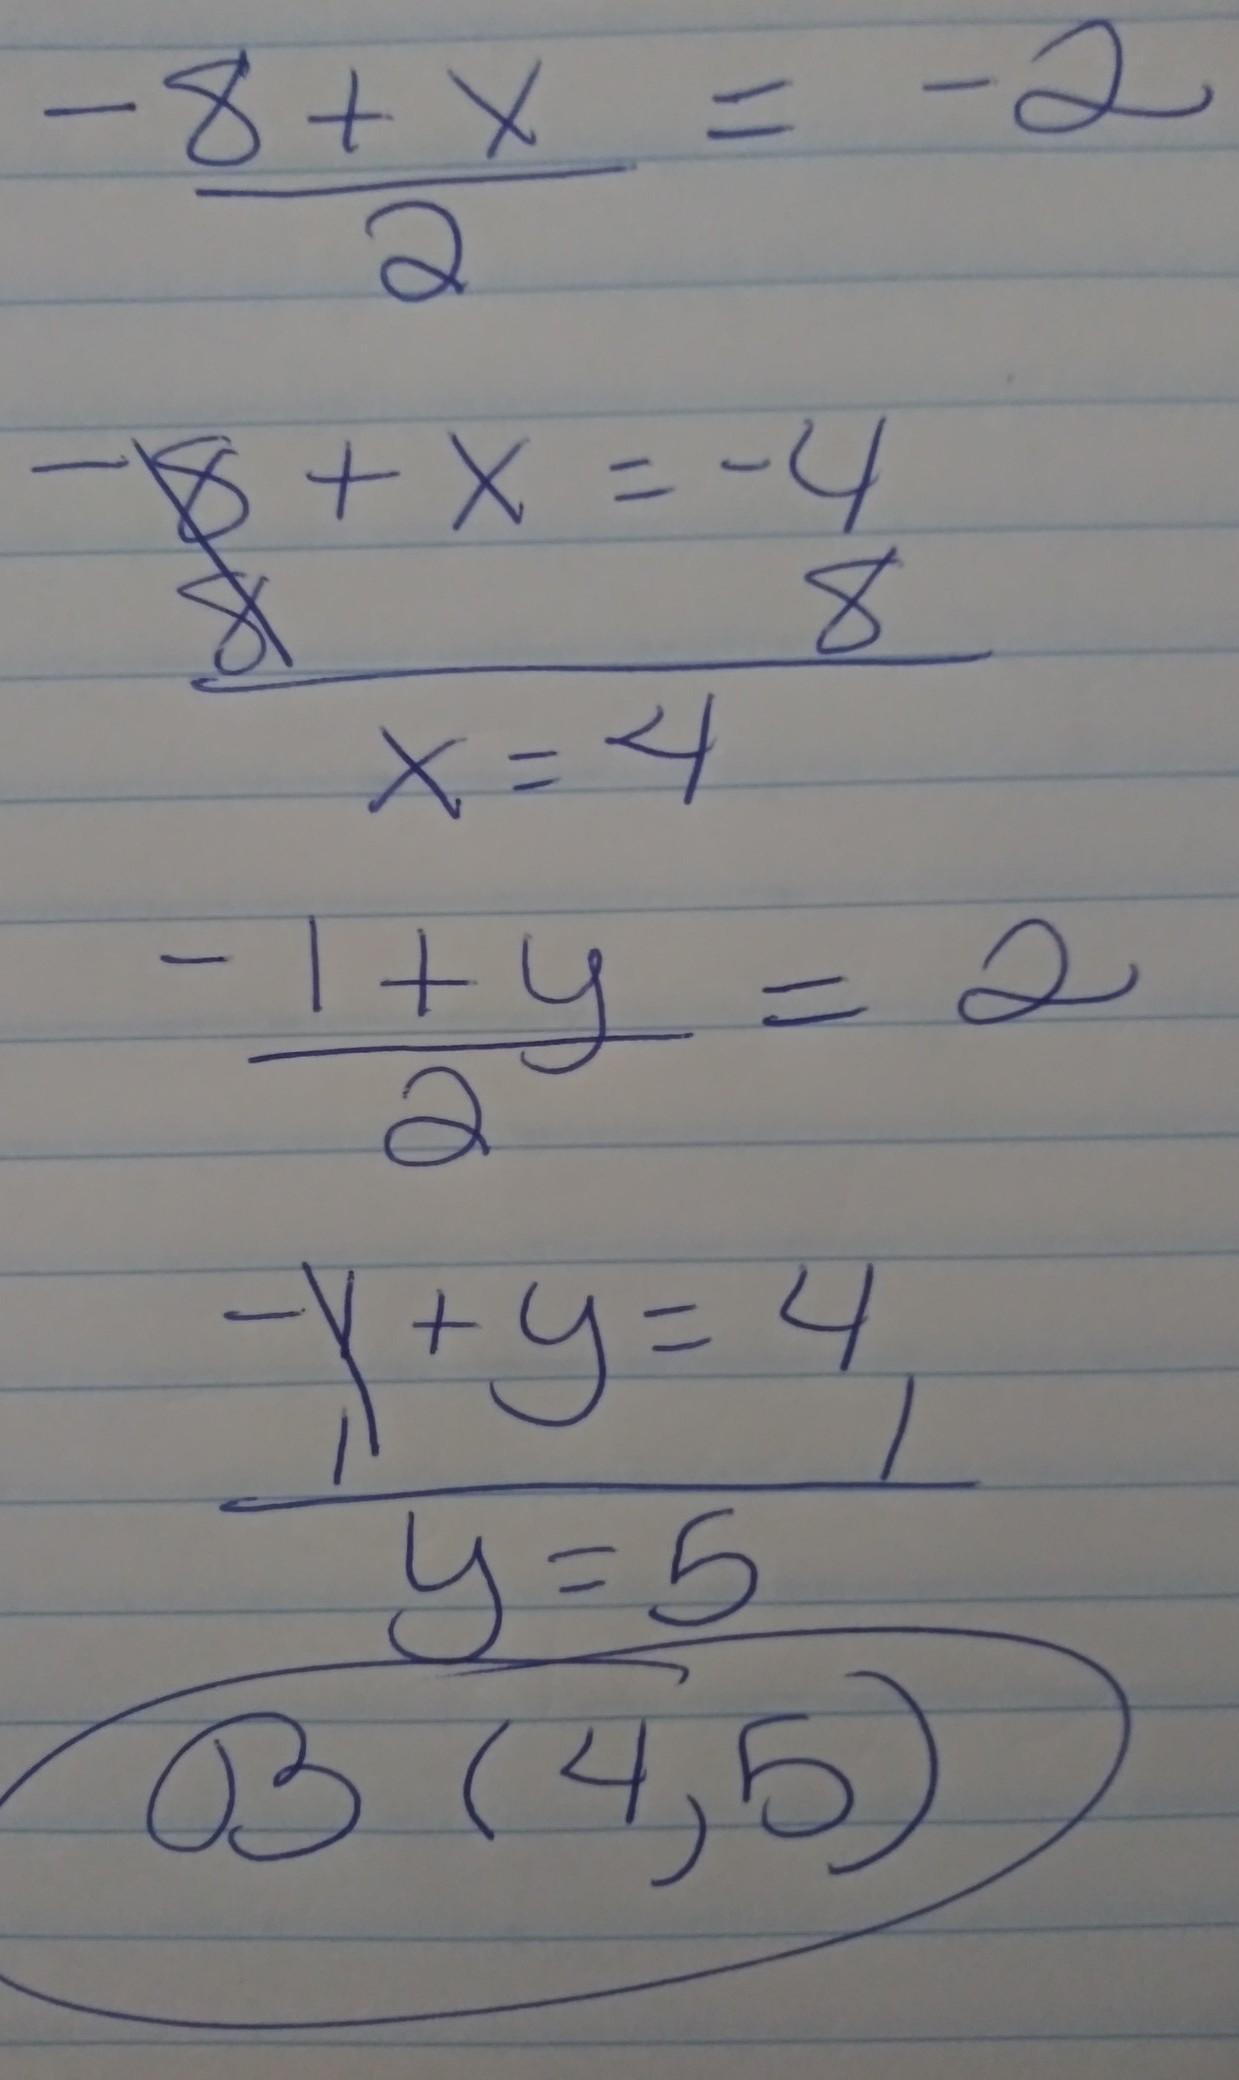 -8 + x = -2
2
-8 + x = -4
8 8
x = 4
-1 + y = 2
2
-1 + y = 4
1 1
y = 5
B (4, 5)